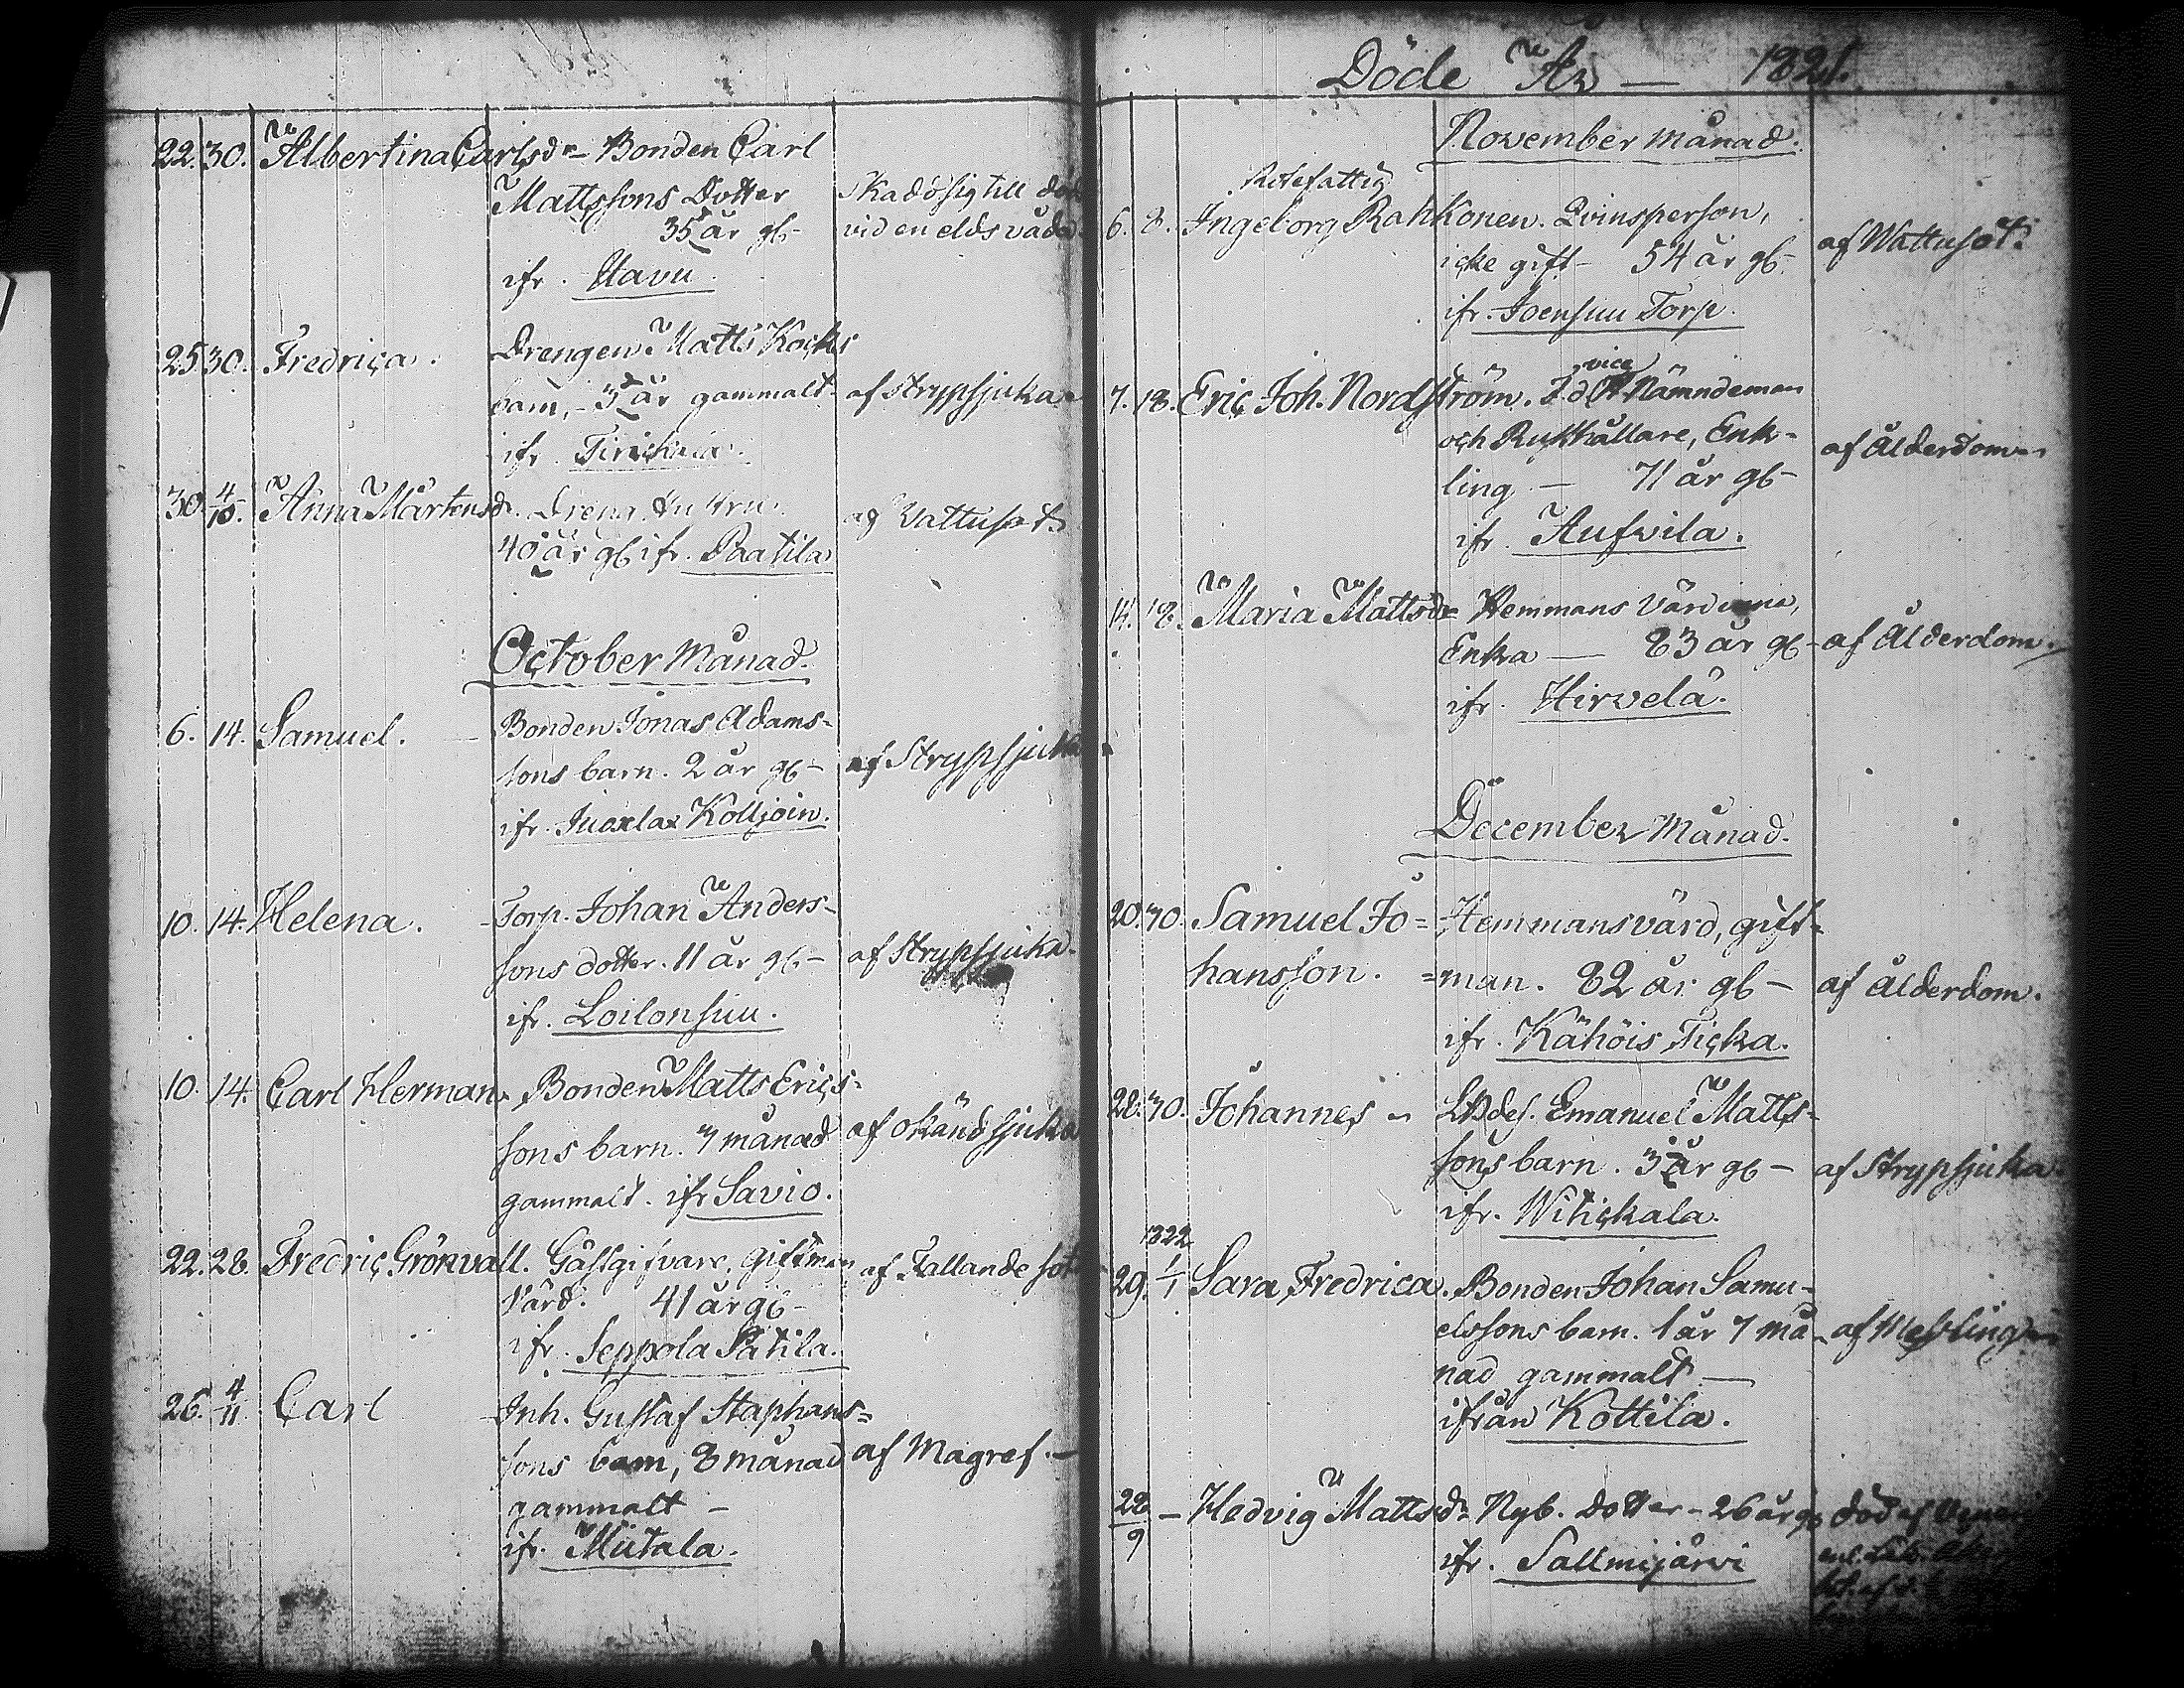 22. 30. Albertina Carlsdr Bonden Carl
Mattssons Dotter skado sig till död
35 år gl- vid en elds våda
ifr. Havu
25 30. Fredrica. Drengen Matts Kocks
barn, - 3 år gammalt af strypsjuka
ifr.
30. 4/10. Anna Mårtensdr. Dreng
40 år gl ifr. Paatila af Vattusot
October Månad.
6. 14. Samuel. Bonden Jonas Adams-
sons barn. 2 år gl- af Strypsjuka
ifr. Kolljoin.
10. 14. Helena. Torp. Johan Anders-
sons dotter. 11 år gl- af Strypsjuka.
ifr. Loilonsuu.
10. 14. Carl Herman. Bonden Matts Erics-
sons barn. 7 månad af okänd sjuka
gammalt. ifr Savio.
22. 28. Fredric Grönvall. Gästgifvare, giftman af Fallande sot
Värd. 41 år gl-
ifr. Seppola Patila.
26. 4/11 Carl Inh. Gustaf Staphans-
sons barn, 8 månad af Magref. -
gammalt -
ifr. Mutala.
Döde År - 1821.
November månad.
Rotefattig
6. 8. Ingeborg Rahkonen. Qvinsperson,
icke gift - 54 år gl- af Wattusot.
ifr. Joensuu Torp.
vice
7. 18. Eric Joh. Nordström. F. d. Nämndeman
och Rusthållare, Enk-
ling - 71 år gl- af Ålderdom
ifr. Aufvila.
14. 18. Maria Mattsdr Hemmans Värdinna,
Enka - 83 år gl- af Ålderdom.
ifr. Hirvelä.
December Månad.
20. 30. Samuel Jo= Hemmansvärd, gift=
hansson. =man. 82 år gl- af ålderdom.
ifr. Kähöis Ticka.
28. 30. Johannes Emanuel Matts-
sons barn. 3 år gl- af Strypsjuka.
ifr. Witickala.
1822
29. 1/1 Sara Fredrica. Bonden Johan Samu-
elssons barn. 1 år 7 må- af Messling
nad gammalt -
ifrån Kottila.
28/9 - Hedvig Mattsdr Nyb. Dotter - 26 år gl död af
ifr. Sallmijärvi